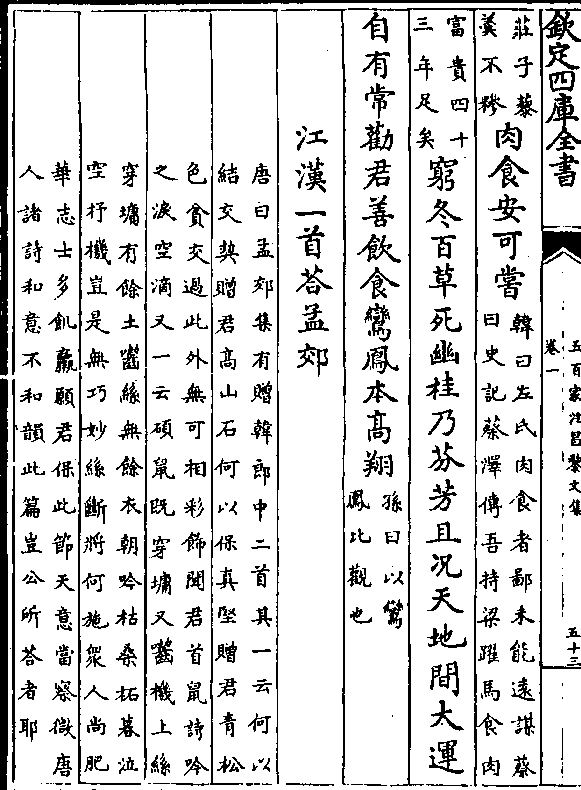 欽定四庫全書
五百家注昌黎文集
卷一
五十三
莊子藜
羮不糝
肉食安可嘗
韓曰左氏肉食者鄙未能遠謀蔡
曰史記蔡澤傳吾持梁躍馬食肉
富貴四十
三年足矣
窮冬百草死幽桂乃芬芳且況天地間大運
自有常勸君善飲食鸞鳳本高翔
孫曰以鸞
鳳比觀也
江漢一首荅孟郊
唐曰孟郊集有贈韓郎中二首其一云何以
結交契贈君高山石何以保真堅贈君青松
色貧交過此外無可相彩飾聞君首鼠詩吟
之淚空滴又一云碩鼠既穿墉又齧機上絲
穿墉有餘土齧絲無餘衣朝吟枯桑柘暮泣
空杼機豈是無巧妙絲斷將何施衆人尚肥
華志士多飢羸願君保此節天意當察微唐
人諸詩和意不和韻此篇豈公所荅者耶